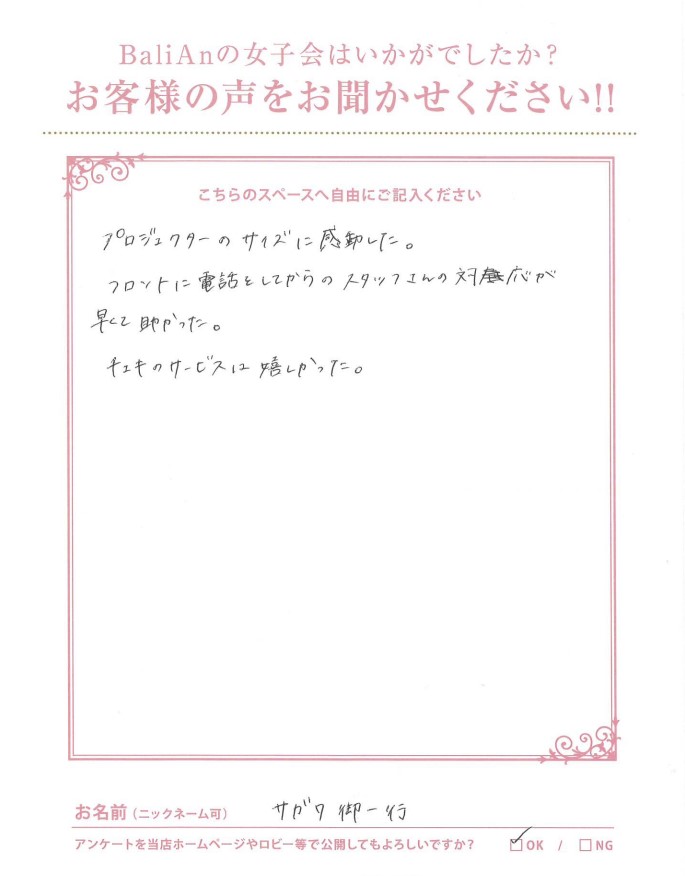 BaliAnの女子会はいかがでしたか？
お客様の声をお聞かせください!!
こちらのスペースへ自由にご記入ください
プロジェクターのサイズに感動した。
フロントに電話をしてからのスタッフさんの対応が
早くて助かった。
チェキのサービスは嬉しかった。
お名前（ニックネーム可） サガワ御一行
アンケートを当店ホームページやロビー等で公開してもよろしいですか？ ☑OK / □NG